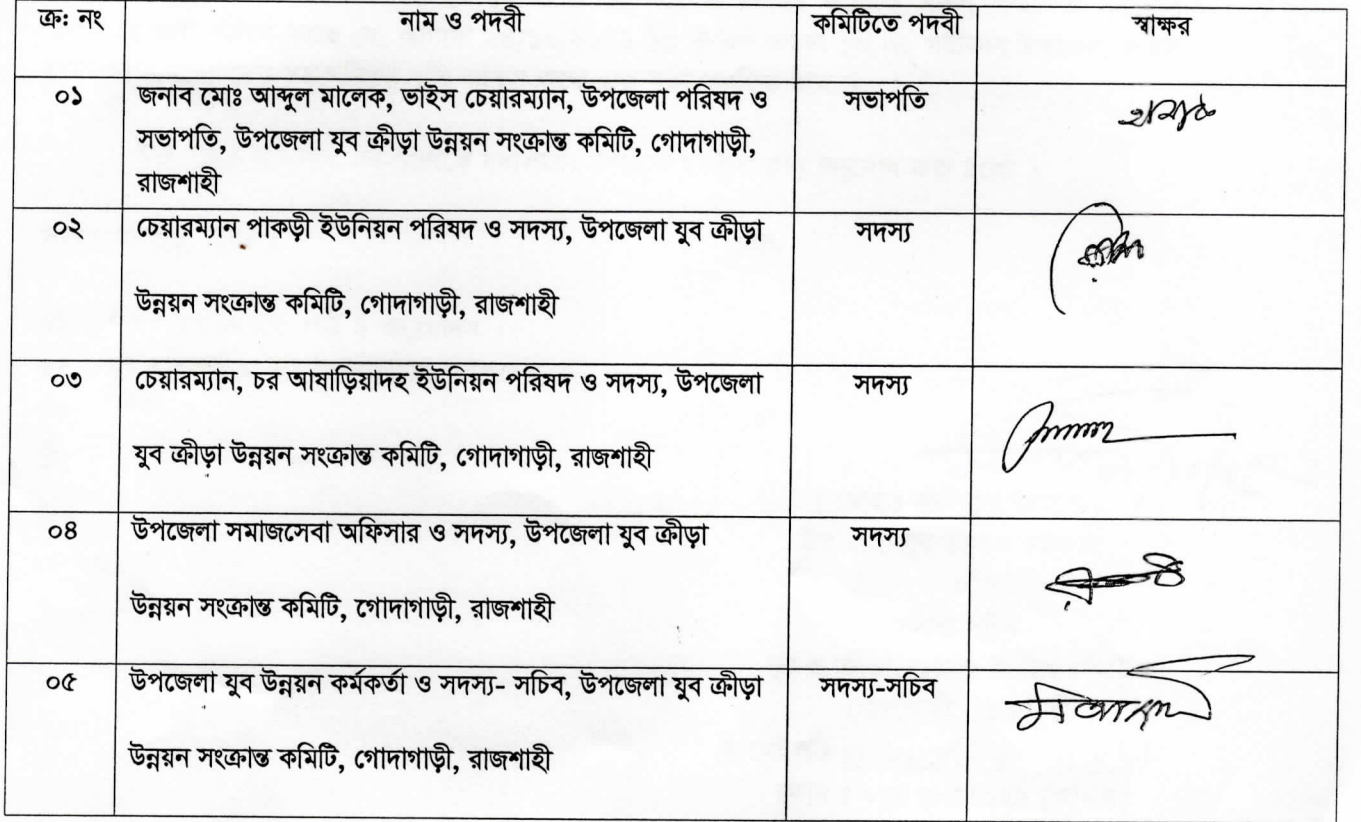 ক্র: নং নাম ও পদবী কমিটিতে পদবী স্বাক্ষর
০১ জনাব মোঃ আব্দুল মালেক, ভাইস চেয়ারম্যান, উপজেলা পরিষদ ও সভাপতি
সভাপতি, উপজেলা যুব ক্রীড়া উন্নয়ন সংক্রান্ত কমিটি, গোদাগাড়ী,
রাজশাহী
০২ চেয়ারম্যান পাকড়ী ইউনিয়ন পরিষদ ও সদস্য, উপজেলা যুব ক্রীড়া সদস্য
উন্নয়ন সংক্রান্ত কমিটি, গোদাগাড়ী, রাজশাহী
০৩ চেয়ারম্যান, চর আষাড়িয়াদহ ইউনিয়ন পরিষদ ও সদস্য, উপজেলা সদস্য
যুব ক্রীড়া উন্নয়ন সংক্রান্ত কমিটি, গোদাগাড়ী, রাজশাহী
০৪ উপজেলা সমাজসেবা অফিসার ও সদস্য, উপজেলা যুব ক্রীড়া সদস্য
উন্নয়ন সংক্রান্ত কমিটি, গোদাগাড়ী, রাজশাহী
০৫ উপজেলা যুব উন্নয়ন কর্মকর্তা ও সদস্য- সচিব, উপজেলা যুব ক্রীড়া সদস্য-সচিব
উন্নয়ন সংক্রান্ত কমিটি, গোদাগাড়ী, রাজশাহী